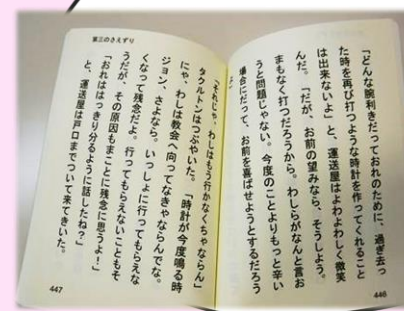 「どんな腕利きだっておれのために、過ぎ去っ
た時を再び打つような時計を作ってくれること
は出来ないよ」と、運送屋はよわよわしく微笑
んだ。「だが、お前の望みなら、そうしよう。
まもなく打つだろうから。わしらがなんと言お
うと問題じゃない。今度のことよりもっと辛い
場合にだって、お前を喜ばせようとするだろう
よ」
446
第三のさえずり
「それじゃ、わしはもう行かなくちゃならん」
タクルトンはつぶやいた。「時計が今度鳴る時
にゃ、わしは教会へ向ってなきゃならんでな。
ジョン、さよなら。いっしょに行ってもらえな
くなって残念だよ。行ってもらえないこともそ
うだが、その原因もまことに残念に思うよ!」
「おれははっきり分るように話したね?」
と、運送屋は戸口までついて来てきいた。
447